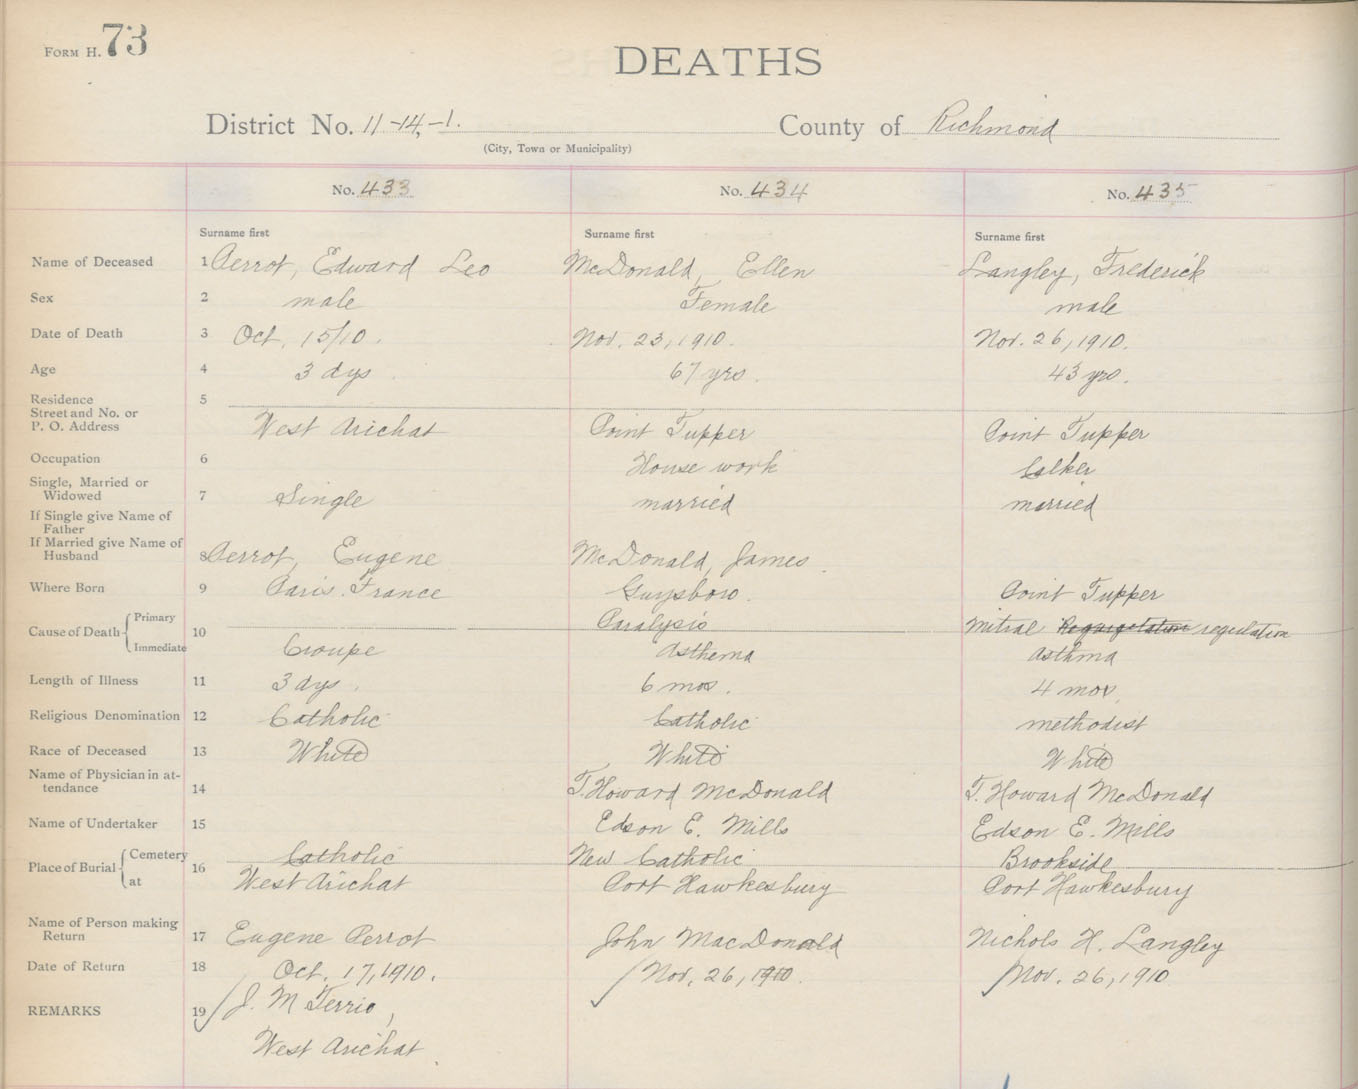 FORM H. 73
DEATHS
District No. 11-14,-1. County of Richmond
(City, Town or Municipality)
No. 433 No. 434 No. 435
Surname first Surname first Surname first
Name of Deceased 1 Perrot, Edward Leo McDonald, Ellen Langley, Frederick
Sex 2 male Female male
Date of Death 3 Oct. 15/10. Nov. 23, 1910. Nov. 26, 1910.
Age 4 3 dys 67 yrs. 43 yrs.
Residence 5
Street and No. or
P. O. Address West Arichat Point Tupper Point Tupper
Occupation 6 House work Calker
Single, Married or
Widowed 7 Single married married
If Single give Name of
Father
If Married give Name of
Husband 8 Perrot, Eugene McDonald, James.
Where Born 9 Paris. France Guysboro. Point Tupper
Cause of Death { Primary 10 Paralysis Mitral regulation
Immediate Croupe Asthema Asthma
Length of Illness 11 3 dys. 6 mos. 4 mos
Religious Denomination 12 Catholic Catholic methodist
Race of Deceased 13 White White White
Name of Physician in at-
tendance 14 T. Howard McDonald T. Howard McDonald
Name of Undertaker 15 Edson E. Mills Edson E. Mills
Place of Burial { Cemetery 16 Catholic New Catholic Brookside
at West Arichat Port Hawkesbury Port Hawkesbury
Name of Person making
Return 17 Eugene Perrot John MacDonald Nichols H. Langley
Date of Return 18 Oct. 17, 1910. Nov. 26, 1910. Nov. 26, 1910
REMARKS 19 J. M Terrio,
West Arichat.